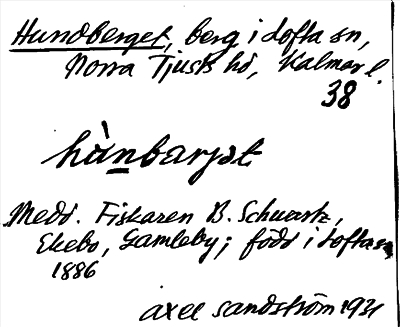 Hundberget, berg i Lofta sn,
Norra Tjusts hd, Kalmar l.
38
hùnbarjət
Medd. Fiskaren B. Schwartz,
Ekebo, Gamleby; född i Lofta sn
1886
Axel Sandström 1931